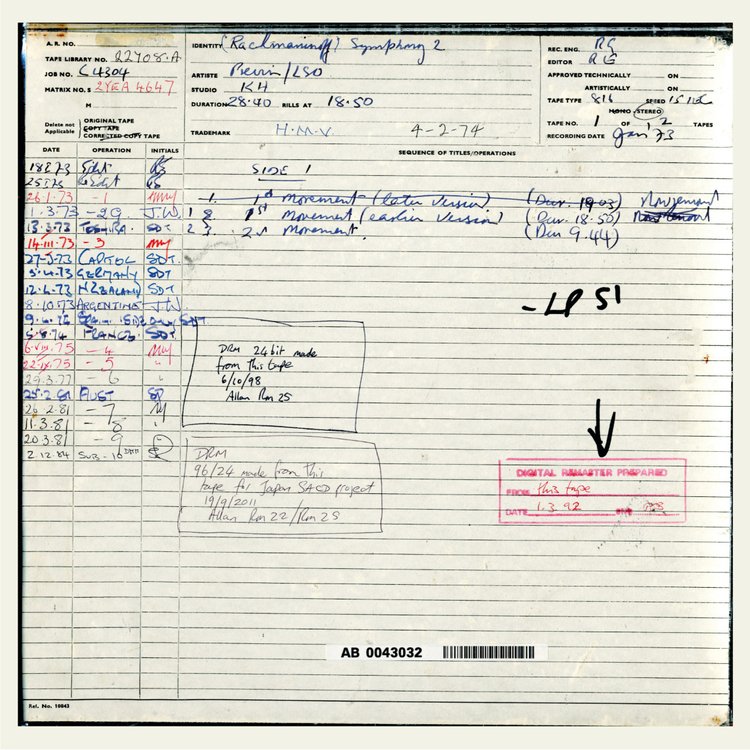 A.R. NO.
TAPE LIBRARY NO. 22408.A
JOB NO. C4304
MATRIX NO. S 2YEA 4647
M
Delete not Applicable
ORIGINAL TAPE
COPY TAPE
CORRECTED COPY TAPE
IDENTITY (Rachmaninoff) Symphony 2
ARTISTE Previn/LSO
STUDIO KH
DURATION 28.40 RILLS AT 18.50
TRADEMARK H.M.V 4-2-74
REC. ENG. RG
EDITOR RG
APPROVED TECHNICALLY ON
ARTISTICALLY ON
TAPE TYPE 816 SPEED 15
MONO STEREO
TAPE NO. 1 OF 2 TAPES
RECORDING DATE Jan '73
DATE OPERATION INITIALS SEQUENCE OF TITLES/OPERATIONS
SIDE 1
1. 1st Movement (later version) (Dur. 19.03)
1 2. 1st Movement (earlier version) (Dur. 18.50)
2 3. 2nd Movement. (Dur 9.44)
Edit
26.1.73 -1
1.3.73 -2G J.W.
13.3.73 SDT
14.III.73 -3
27-3-73 CAPITOL SDT.
5.4.73 GERMANY SDT
12.4.73 N ZEALAND SDT
8.10.73 ARGENTINE J.W.
SDT.
5.8.74 FRANCE SDT.
6.VIII.75 -4
22.IX.75 -5 "
29.3.77 - 6 "
25.2.80 AUST SP
26.2.81 -7
11.3.81 - 8 "
20.3.81 - 9
2.12.84 SUB-10
- LP S1
DRM 24 bit made
from this tape
6/10/98
Allan Rm 25
DRM
96/24 made from this
tape for Japan SACD project
19/9/2011
Allan Rm 22/Rm 25
DIGITAL REMASTER PREPARED
FROM this tape
DATE 1.3.92
AB 0043032
Ref. No. 19843